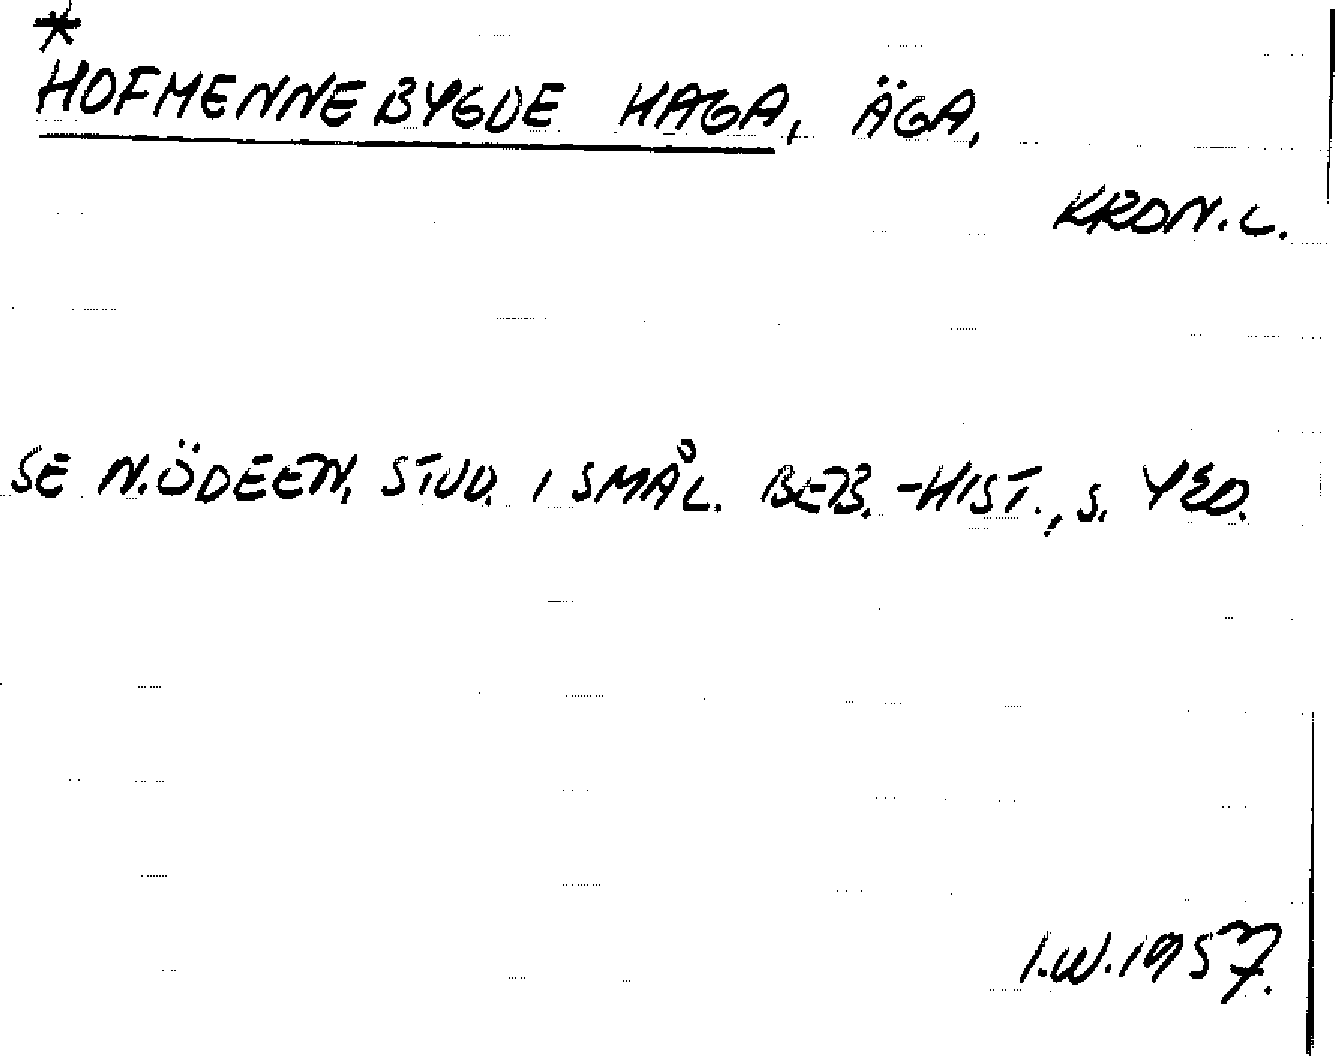 *
HOFMENNEBYGDE HAGA, ÄGA,
KRON.L.
SE N.ÖDEEN, STUD. I SMÅL. BEB.-HIST., S.
I.W.1957.